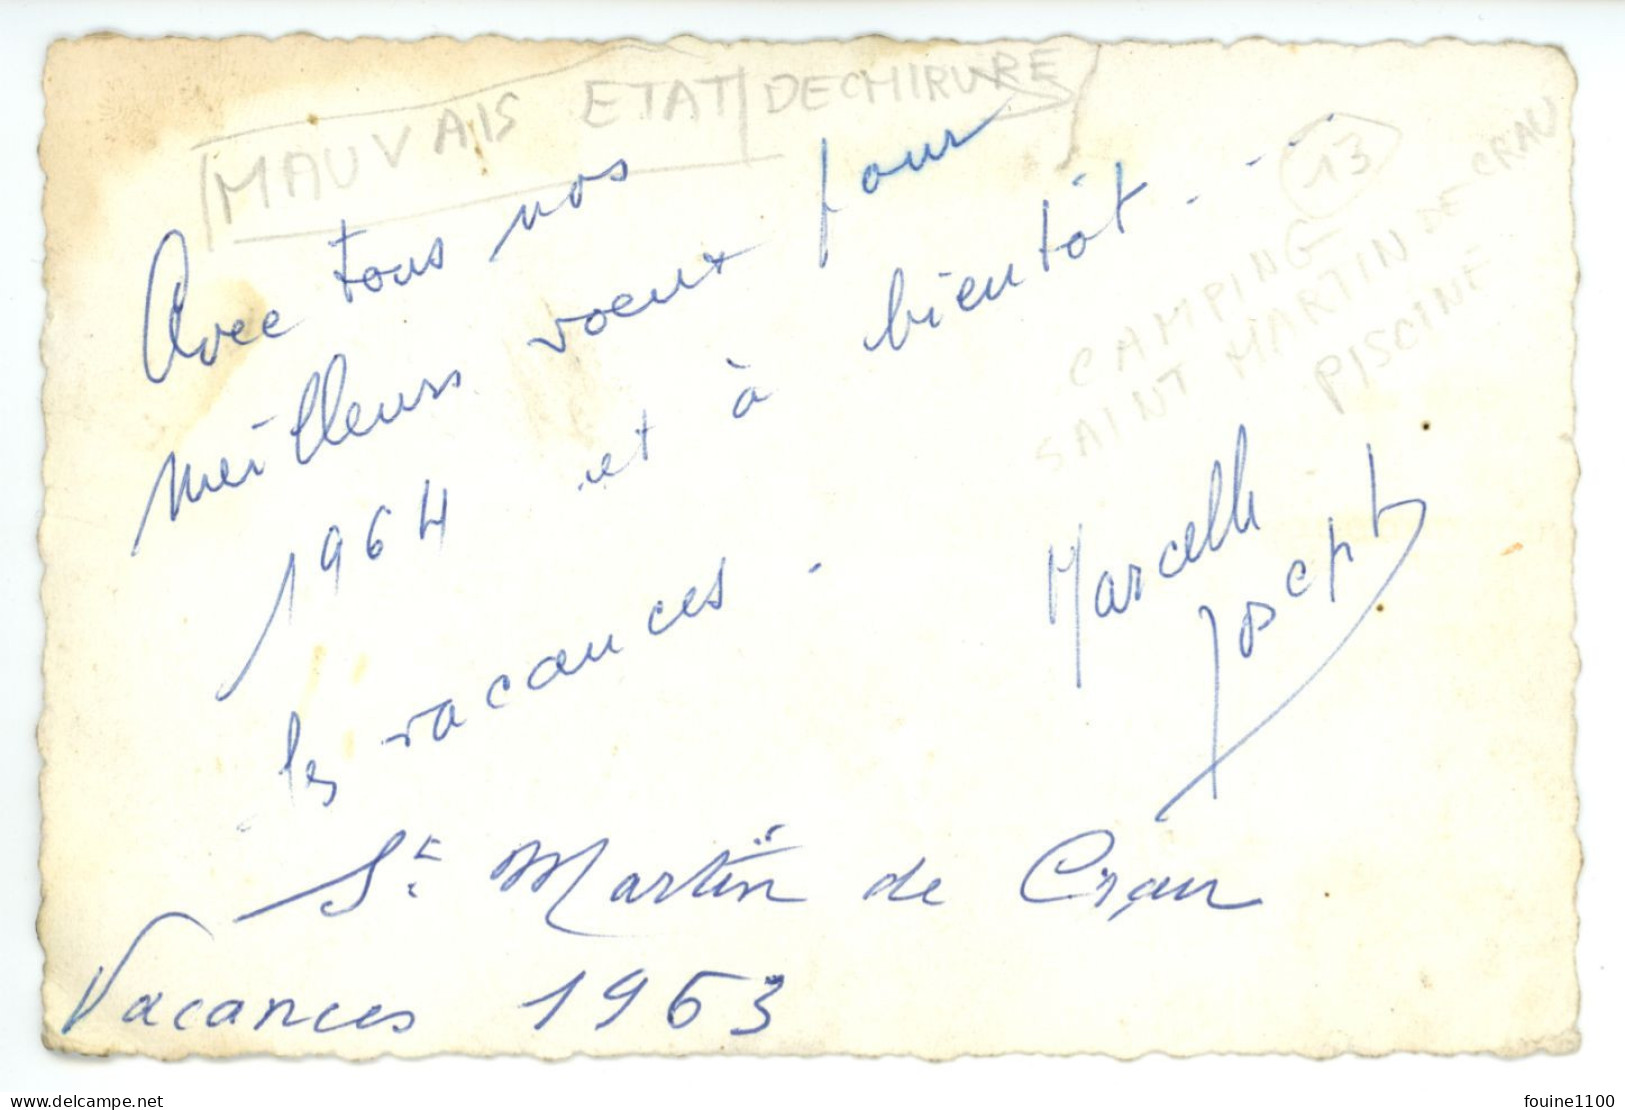 MAUVAIS ETAT DECHIRURE
13
CAMPING
SAINT MARTIN DE CRAU
PISCINE
Avec tous nos
meilleurs voeux pour
1964 et à bientôt...
les vacances.
Marcelle
Joseph
St Martin de Crau
Vacances 1963
www.delcampe.net
fouine1100